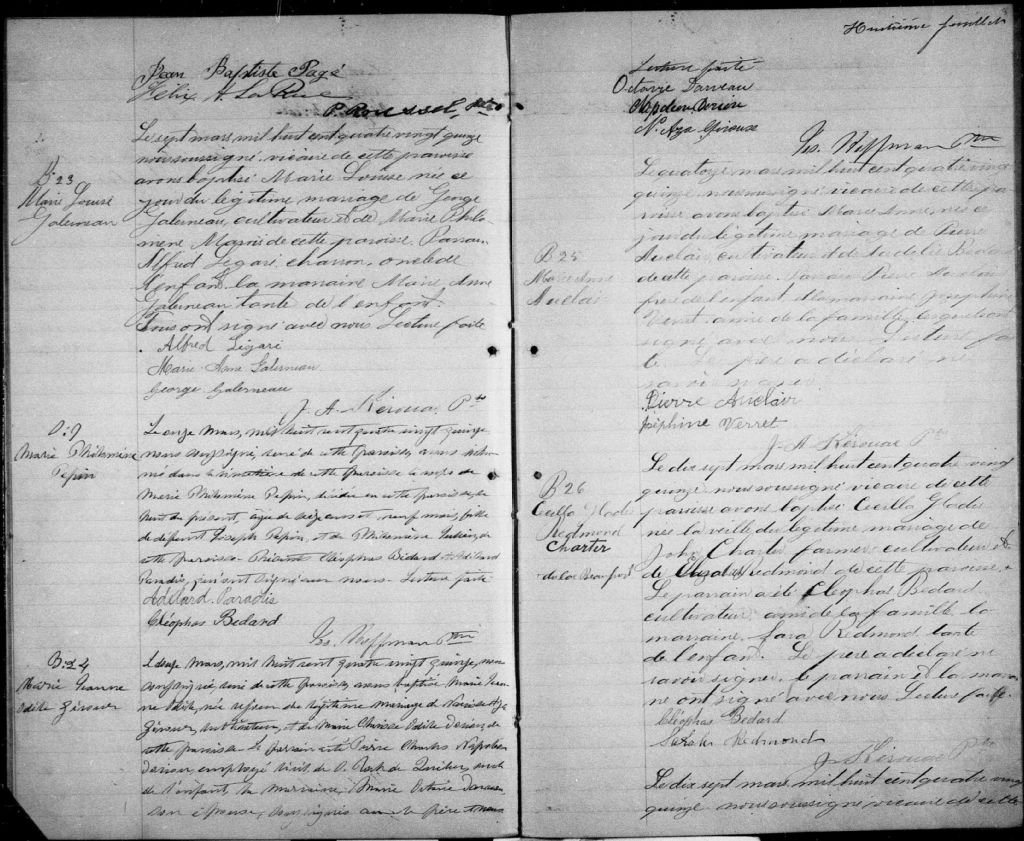 Jean Baptiste Pagé
Félix A. LaRue
P. Roussel, Ptre
B 23
Marie Louise
Galerneau
Le sept mars mil huit cent quatre vingt quinze
nous soussigné, vicaire de cette paroisse
avons baptisé Marie Louise née ce
jour du légitime mariage de George
Galerneau, cultivateur et de Marie Philo
mène de cette paroisse. Parrain
Alfred Légaré charron, oncle de
l'enfant la marraine Marie Anne
Galerneau tante de l'enfant.
Tous ont signé avec nous. Lecture faite
Alfred Légaré
Marie Anne Galerneau
George Galerneau
J. A. Kérouac Ptre
Marie Philomène
Pepin
Le onze Mars, mil huit cent quatre vingt quinze,
nous soussigné, curé de cette paroisse, avons inhu
mé dans le cimetière de cette paroisse le corps de
Marie Philomène Pepin, décédée en cette paroisse, le
huit du présent, agée de seize ans et neuf mois, fille
de defunt Joseph Pepin, et de Philomène
cette paroisse. Présents Cléophas Bédard et Adélard
Paradis, qui ont signé avec nous. Lecture faite
Adélard Paradis
Cléophas Bedard
B. 24
Marie Jeanne
Odile Girouse
Le douze Mars, mil huit cent quatre vingt quinze, nous
soussigné, curé de cette paroisse, avons baptisé Marie Jean
ne Odile, née du légitime mariage de
cultivateur, et de Marie
cette paroisse. Le parrain a été Pierre Charles Napoléon
employé de St. Roch de Québec, oncle
de l'enfant, la marraine, Marie Octavie Darveau
son épouse, soussignés avec le père et nous
Huitième feuillet
Lecture faite
Octavie Darveau
Napoléon
N. Aza Girouse
B 25
Marie Anne
Auclair
Le quatorze mars mil huit cent quatre ving
quinze nous soussigné vicaire de cette pa
roisse avons baptisé Marie Anne, née ce
jour du légitime mariage de Pierre
Auclair, cultivateur et de Adélé Bedard
de cette paroisse. Parrain Pierre Auclair
frère de l'enfant et la marraine Joséphine
Verret amie de la famille, lesquels ont
signé avec nous. Lecture fai
te. Le père a déclaré ne
savoir signer.
Pierre Auclair
Joséphine Verret
J. A Kérouac Ptre
B 26
Cecilla Gladis
Redmond
Charter
Le dix sept mars mil huit cent quatre ving
quinze nous soussigné vicaire de cette
paroisse avons baptisé Cecilla Gladis
née la veille du légitime mariage de
John Charter farmer cultivateur et
de Redmond de cette paroisse.
Le parrain a été Cléophas Bedard
cultivateur, ami de la famille la
marraine, Sara Redmond tante
de l'enfant. Le père a déclaré ne
savoir signer, le parrain et la marrai
ne ont signé avec nous. Lecture faite.
Cléophas Bedard
Sarah Redmond
J. Kérouac Ptre
Le dix sept mars mil huit cent quatre ving
quinze nous soussigné vicaire de cette